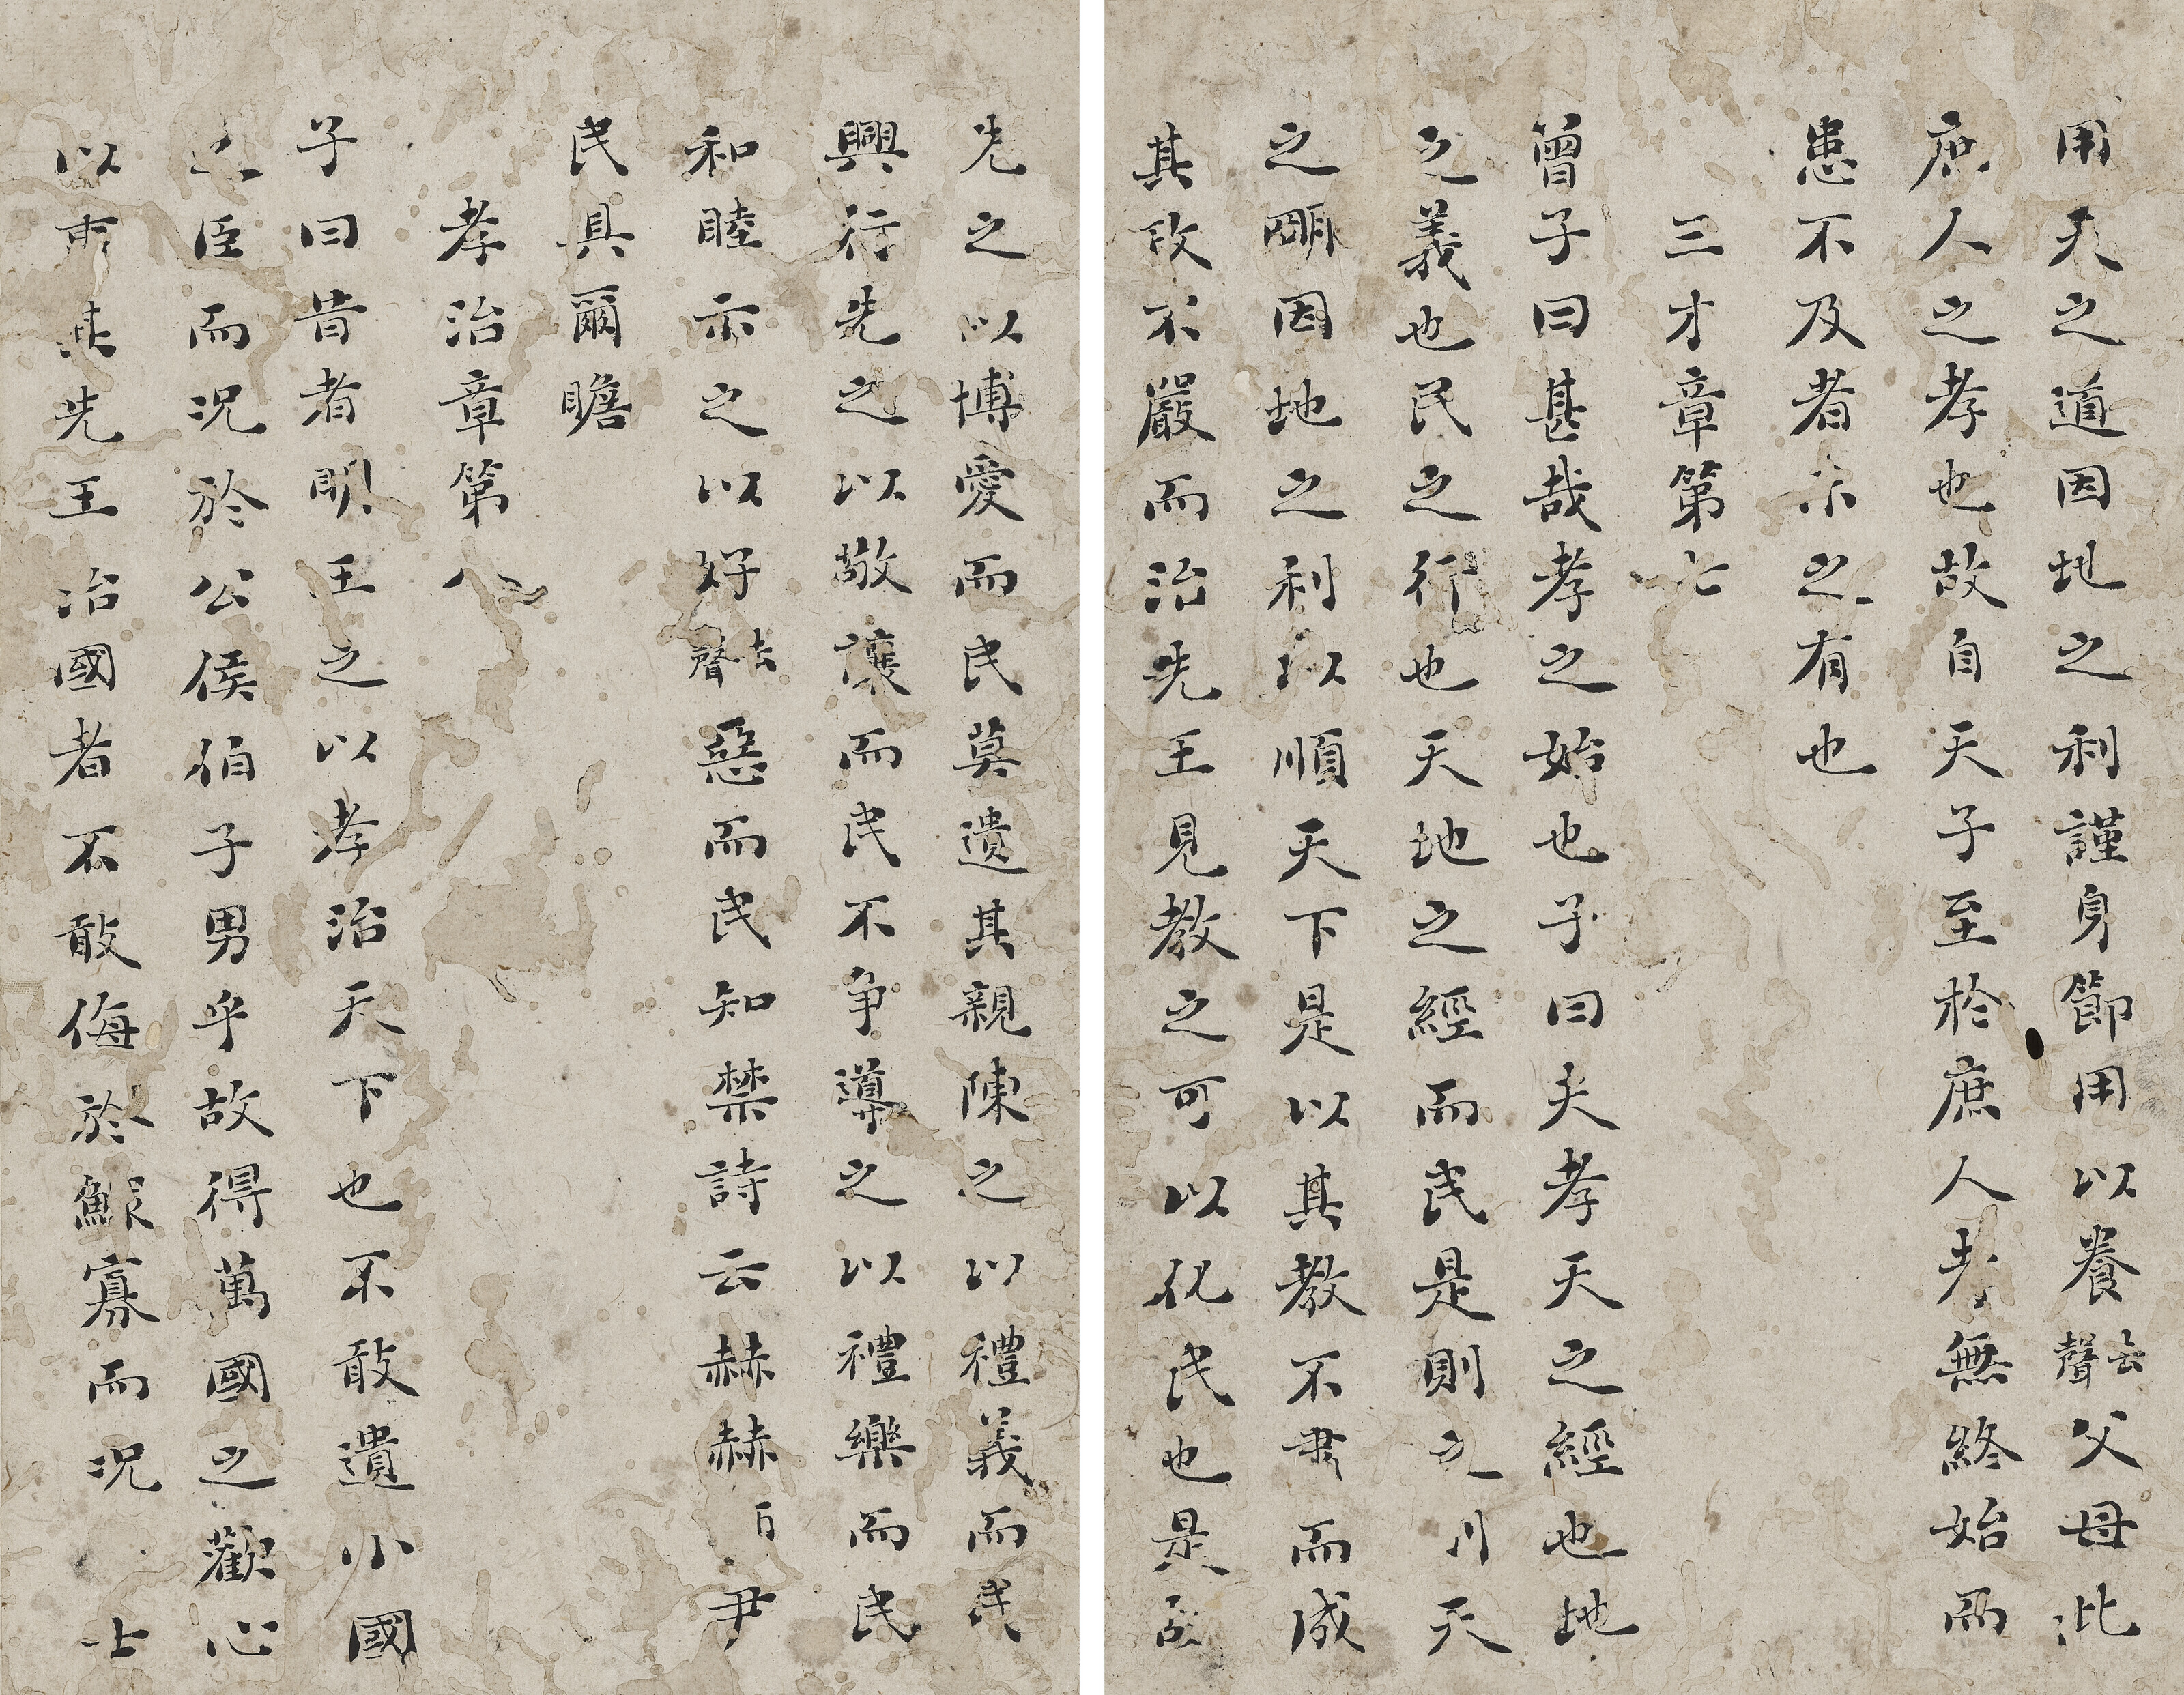 用天之道因地之利謹身節用以養去聲父母此
庶人之孝也故自天子至於庶人孝無終始而
患不及者未之有也
三才章第七
曾子曰甚哉孝之始也子曰夫孝天之經也地
之義也民之行也天地之經而民是則之則天
之明因地之利以順天下是以其教不肅而成
其政不嚴而治先王見教之可以化民也是故
先之以博愛而民莫遺其親陳之以禮義而民
興行先之以敬讓而民不爭導之以禮樂而民
和睦示之以好去聲惡而民知禁詩云赫赫尹
民具爾瞻
孝治章第八
子曰昔者明王之以孝治天下也不敢遺小國
之臣而況於公侯伯子男乎故得萬國之歡心
以事其先王治國者不敢侮於鰥寡而況士